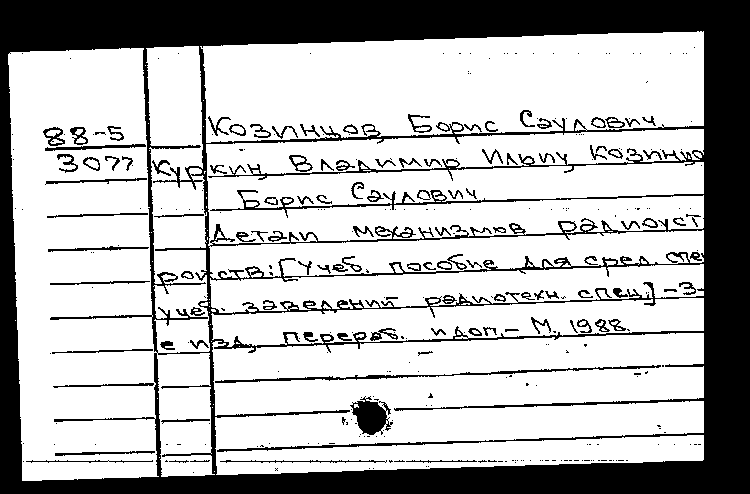 88-5 Козинцов, Борис Саулович.
3077 Куркин, Владимир Ильич, Козинцо
Борис Саулович.
Детали механизмов радиоуст
ройств: [Учеб. пособие для сред. спе
учеб. заведений радиотехн. спец.] - 3-
е изд., перераб. и доп. - М., 1988.